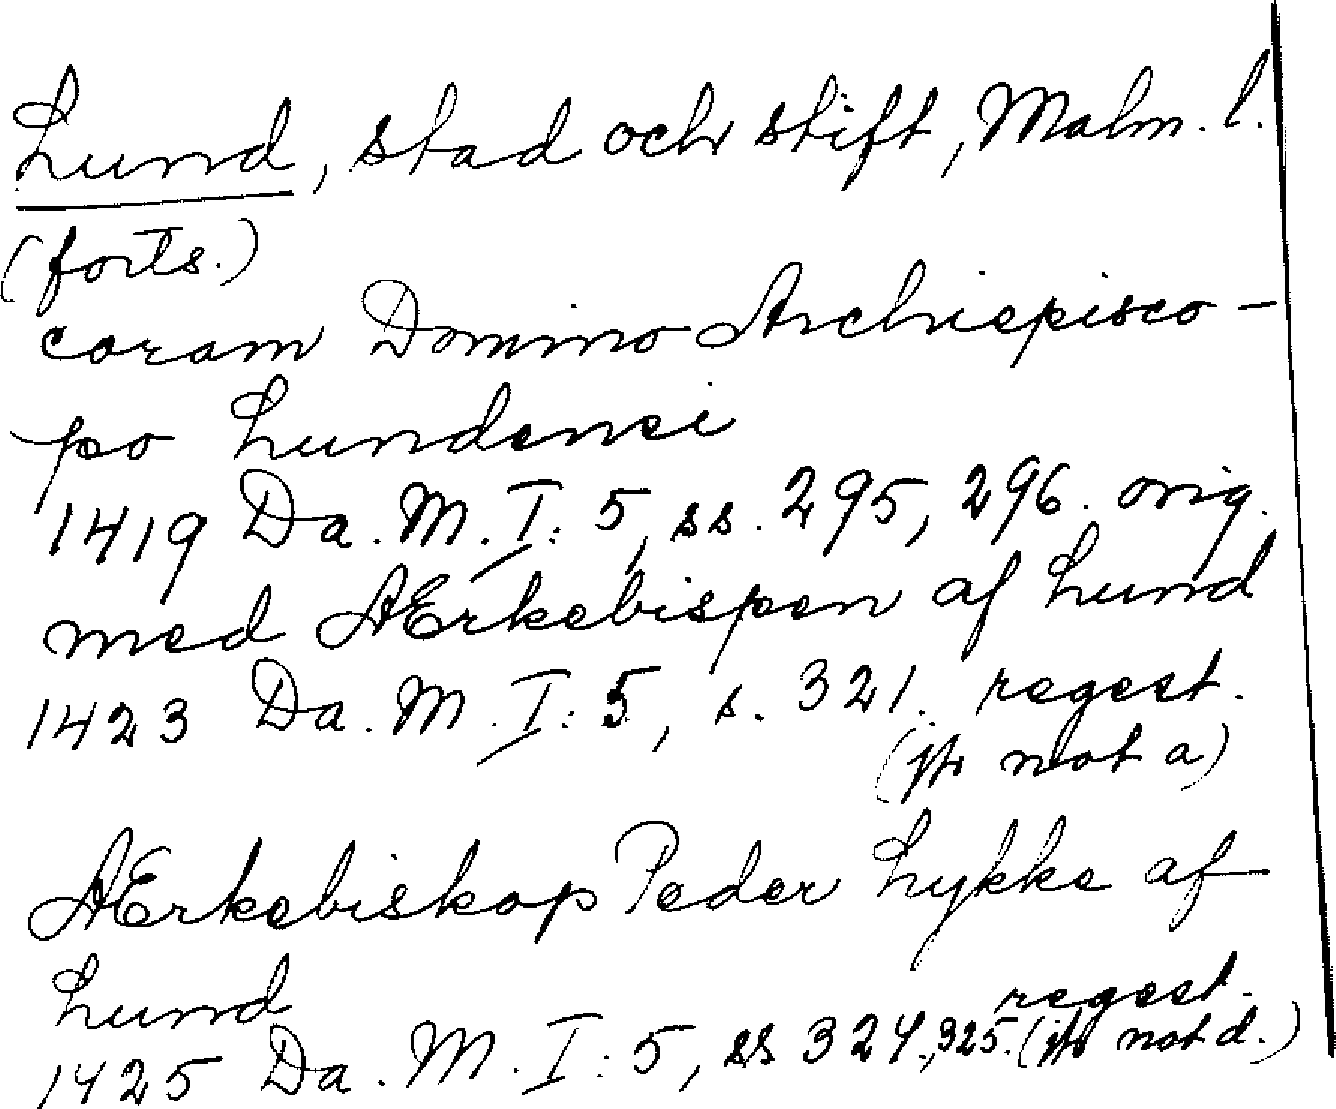 Lund, stad och stift, Malm. l.
(forts.)
coram Domino Archiepisco-
po Lundensi
1419 Da. M. I: 5, ss. 295, 296. orig.
med AErkebispen af Lund
1423 Da. M. I: 5, s. 321. regest.
(jfr not a)
AErkebiskop Peder Lykke af
Lund
regest.
1425 Da. M. I: 5, ss 324, 325. (jfr not d.)